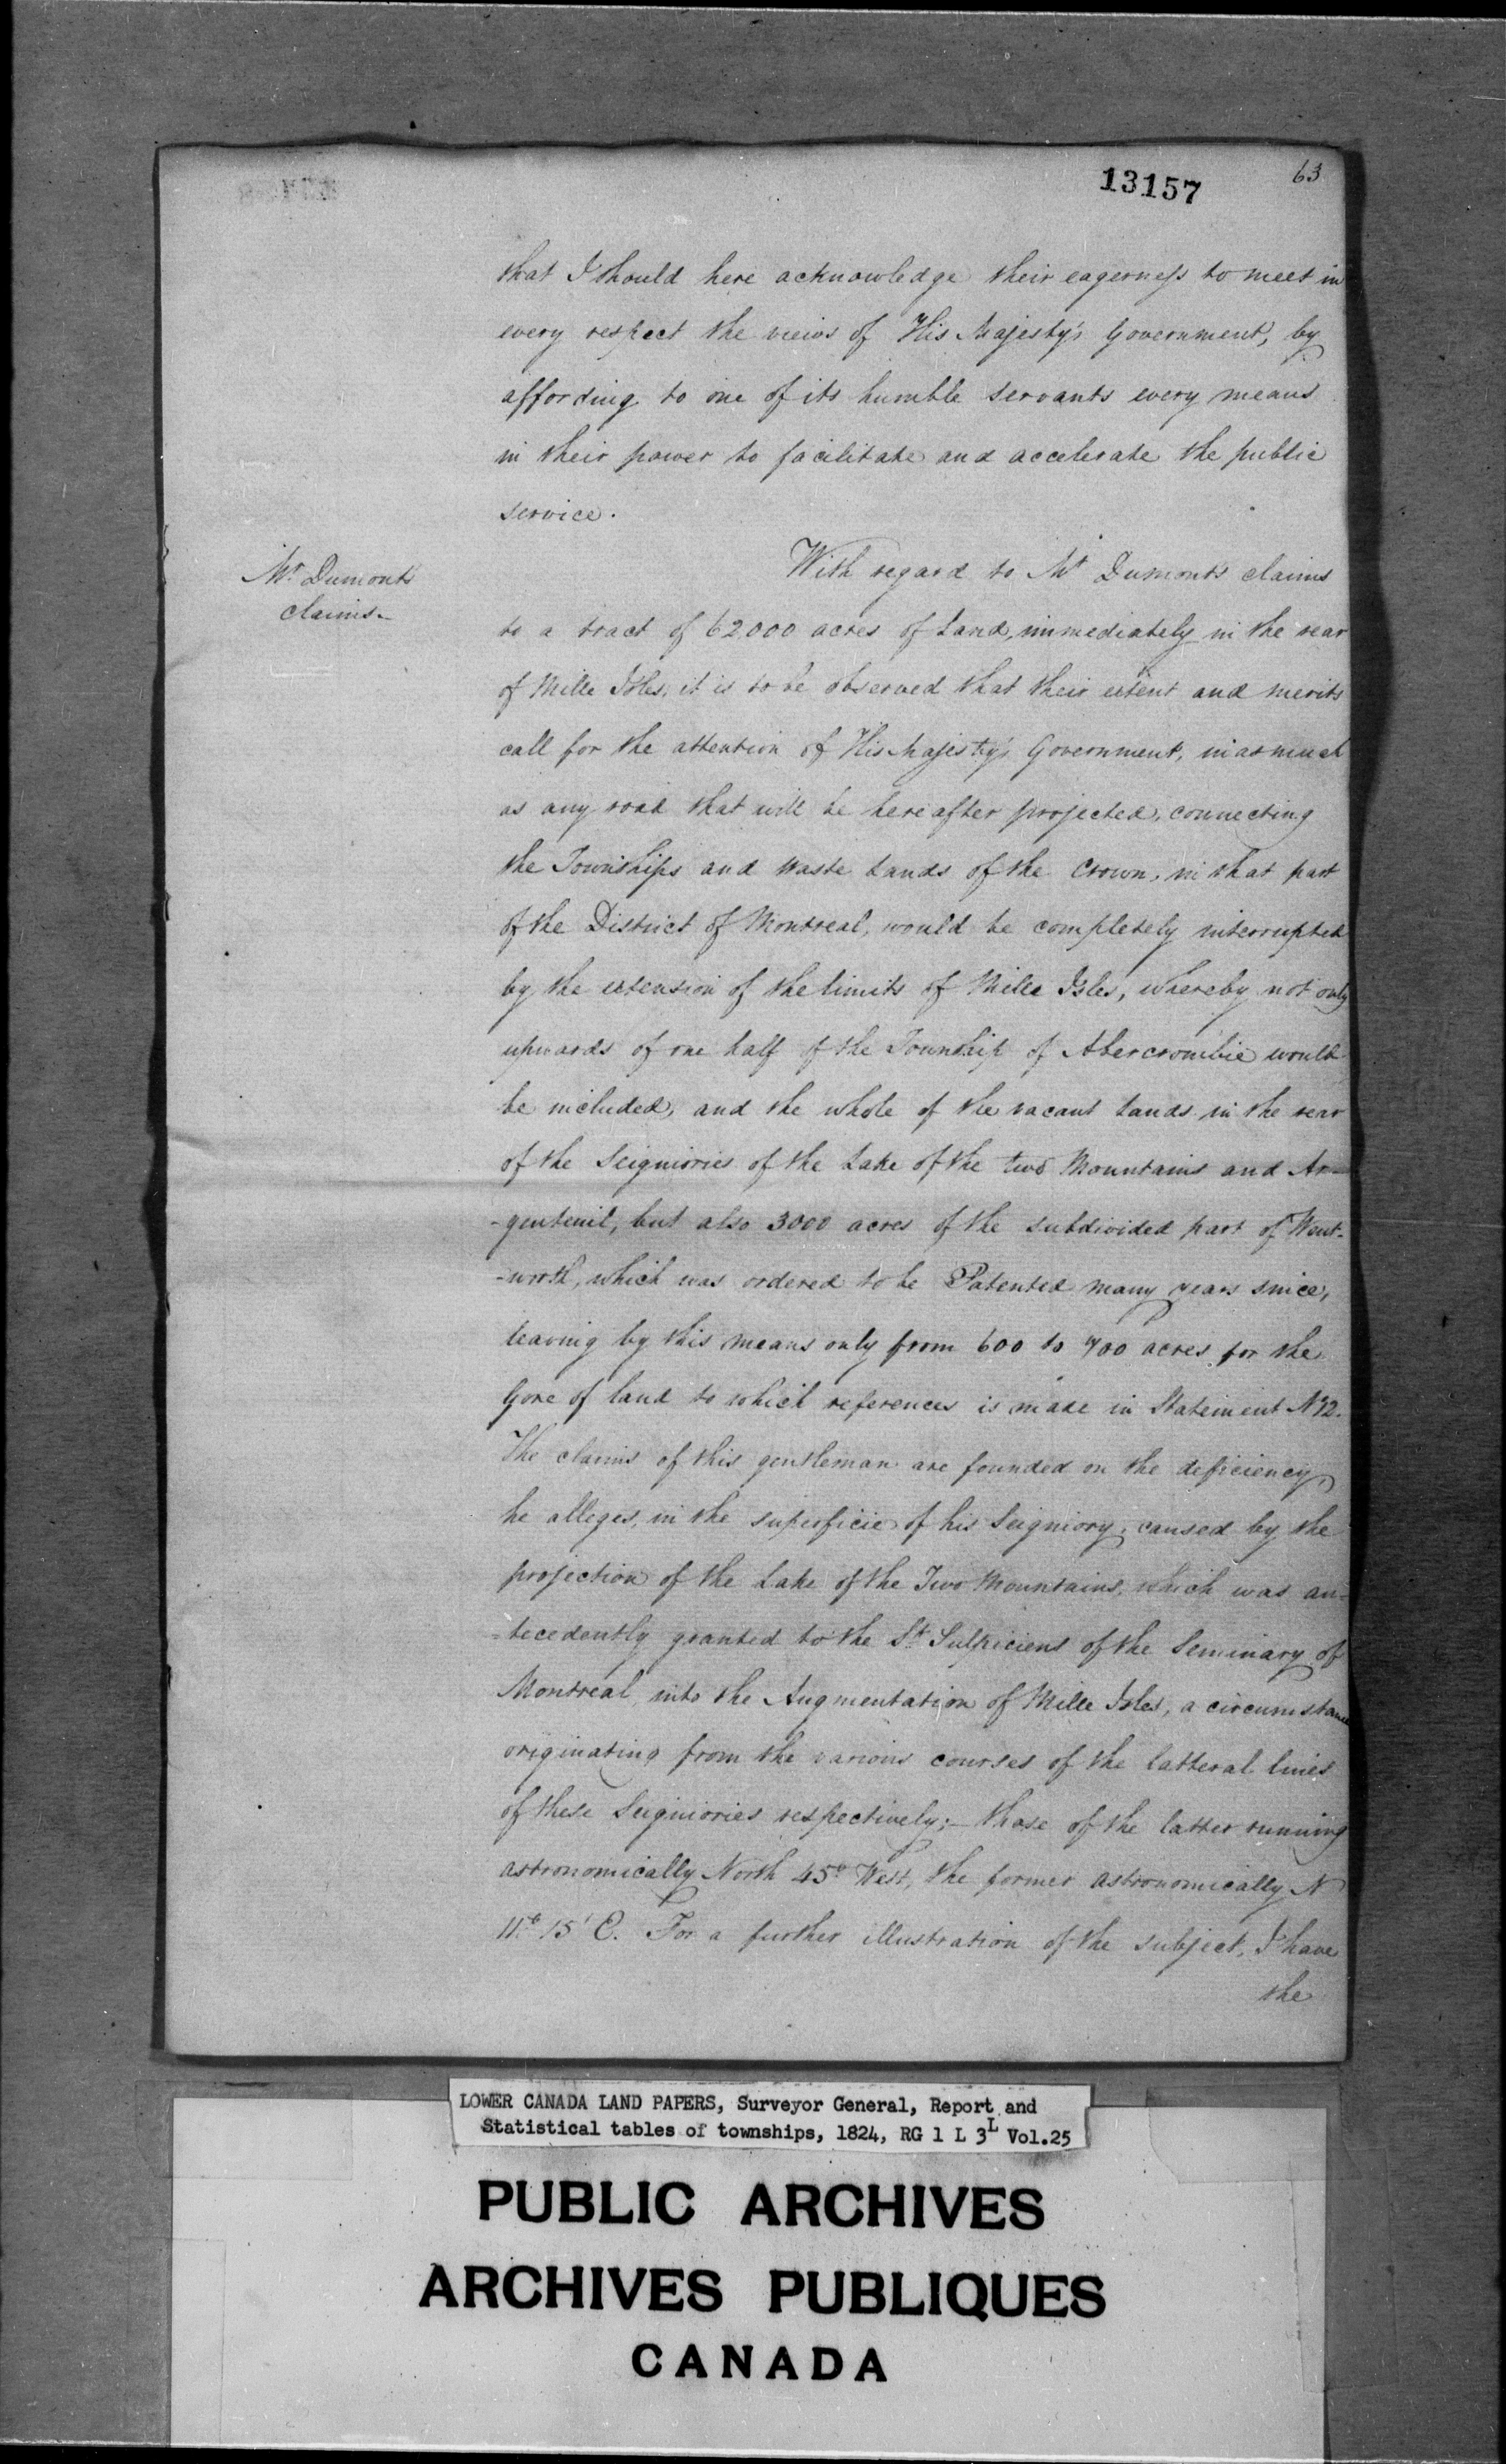 13157
63
that I should here acknowledge their eagerness to meet in
every respect the views of His Majesty's Government, by
affording to one of its humble servants every means
in their power to facilitate and accelerate the public
service.
Mr. Dumonts
claims.
With regard to Mr Dumont's claims
to a tract of 62000 acres of Land, immediately in the rear
of Mille Isles, it is to be observed that their extent and merits
call for the attention of His Majesty's Government, in as much
as any road that will be hereafter projected, connecting
the Townships and Waste Lands of the Crown, in that part
of the District of Montreal, would be completely interrupted
by the extension of the limits of Mille Isles, whereby not only
upwards of one half of the Township of Abercrombie would
be included, and the whole of the vacant Lands in the rear
of the Seigniories of the Lake of the two Mountains and Ar-
-genteuil, but also 3000 acres of the subdivided part of Went-
-worth, which was ordered to be Patented many years since,
leaving by this means only from 600 to 700 acres for the
Gore of land to which references is made in Statement No 2.
The claims of this gentleman are founded on the deficiency,
he alleges, in the superficie of his Seigniory, caused by the
projection of the Lake of the Two Mountains, which was an-
-tecedently granted to the St Sulpiciens of the Seminary of
Montreal, into the Augmentation of Mille Isles, a circumstance
originating from the various courses of the latteral lines
of these Seigniories respectively;- those of the latter running
astronomically North 45° West, the former astronomically N
11° 15' E. For a further illustration of the subject, I have
the
LOWER CANADA LAND PAPERS, Surveyor General, Report and
Statistical tables of townships, 1824, RG 1 L 3L Vol.25
PUBLIC ARCHIVES
ARCHIVES PUBLIQUES
CANADA